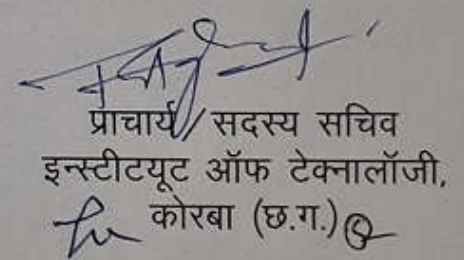 प्राचार्य/सदस्य सचिव
इन्स्टीटयूट ऑफ टेक्नालॉजी,
कोरबा (छ.ग.)